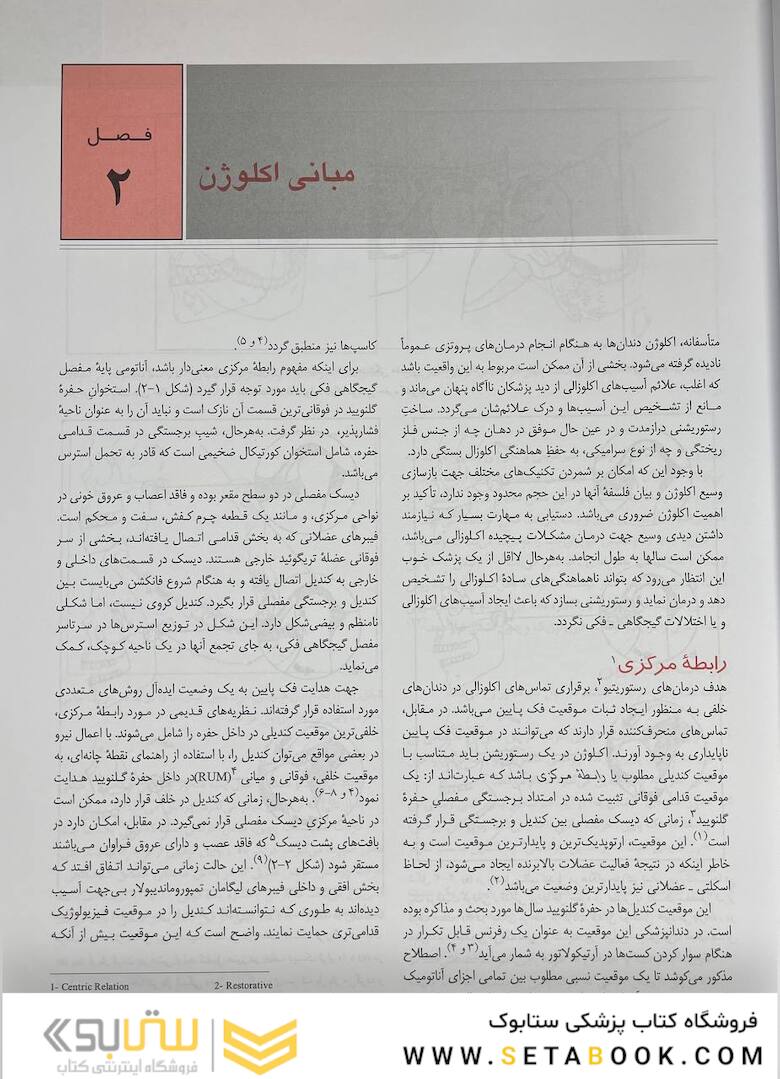 فصل
۲
مبانی اکلوژن
متأسفانه، اکلوژن دندان‌ها به هنگام انجام درمان‌های پروتزی عموماً
نادیده گرفته می‌شود. بخشی از آن ممکن است مربوط به این واقعیت باشد
که اغلب، علائم آسیب‌های اکلوزالی از دید پزشکان ناآگاه پنهان می‌ماند و
مانع از تشخیص این آسیب‌ها و درک علائم‌شان می‌گردد. ساختِ
رستوریشنی درازمدت و در عین حال موفق در دهان چه از جنس فلز
ریختگی و چه از نوع سرامیکی، به حفظِ هماهنگی اکلوزال بستگی دارد.
با وجود این که امکان بر شمردن تکنیک‌های مختلف جهت بازسازی
وسیع اکلوژن و بیان فلسفهٔ آنها در این حجم محدود وجود ندارد، تأکید بر
اهمیت اکلوژن ضروری می‌باشد. دستیابی به مهارت بسیار که نیازمند
داشتن دیدی وسیع جهت درمان مشکلات پیچیده اکلوزالی می‌باشد،
ممکن است سالها به طول انجامد. به‌هرحال لااقل از یک پزشک خوب
این انتظار می‌رود که بتواند ناهماهنگی‌های سادهٔ اکلوزالی را تشخیص
دهد و درمان نماید و رستوریشنی بسازد که باعث ایجاد آسیب‌های اکلوزالی
و یا اختلالات گیجگاهی ـ فکی نگردد.
رابطهٔ مرکزی۱
هدف درمان‌های رستوریتیو۲، برقراری تماس‌های اکلوزالی در دندان‌های
خلفی به منظور ایجاد ثبات موقعیت فک پایین می‌باشد. در مقابل،
تماس‌های منحرف‌کننده قرار دارند که می‌توانند در موقعیت فک پایین
ناپایداری به وجود آورند. اکلوژن در یک رستوریشن باید متناسب با
موقعیت کندیلی مطلوب یا رابطهٔ مرکزی باشد که عبارت‌اند از: یک
موقعیت قدامی فوقانی تثبیت شده در امتداد برجستگی مفصلیِ حفرهٔ
گلنویید۳، زمانی که دیسک مفصلی بین کندیل و برجستگی قرار گرفته
است(۱). این موقعیت، ارتوپدیک‌ترین و پایدارترین موقعیت است و به
خاطر اینکه در نتیجهٔ فعالیت عضلات بالابرنده ایجاد می‌شود، از لحاظ
اسکلتی ـ عضلانی نیز پایدارترین وضعیت می‌باشد(۲).
این موقعیت کندیل‌ها در حفرهٔ گلنویید سال‌ها مورد بحث و مذاکره بوده
است. در دندانپزشکی این موقعیت به عنوان یک رفرنس قابل تکرار در
هنگام سوار کردن کست‌ها در آرتیکولاتور به شمار می‌آید(۳ و ۴). اصطلاح
مذکور می‌کوشد تا یک موقعیت نسبی مطلوب بین تمامی اجزای آناتومیک
کاسپ‌ها نیز منطبق گردد(۴ و ۵).
برای اینکه مفهوم رابطهٔ مرکزی معنی‌دار باشد، آناتومی پایهٔ مفصل
گیجگاهی فکی باید مورد توجه قرار گیرد (شکل ۱–۲). استخوان حفرهٔ
گلنویید در فوقانی‌ترین قسمت آن نازک است و نباید آن را به عنوان ناحیهٔ
فشارپذیر، در نظر گرفت. به‌هرحال، شیبِ برجستگی در قسمت قدامی
حفره، شامل استخوان کورتیکال ضخیمی است که قادر به تحمل استرس
می‌باشد.
دیسک مفصلی در دو سطح مقعر بوده و فاقد اعصاب و عروق خونی در
نواحی مرکزی، و مانند یک قطعه چرم کفش، سفت و محکم است.
فیبرهای عضلانی که به بخش قدامی اتصال یافته‌اند، بخشی از سر
فوقانی عضلهٔ تریگوئید خارجی هستند. دیسک در قسمت‌های داخلی و
خارجی به کندیل اتصال یافته و به هنگام شروع فانکشن می‌بایست بین
کندیل و برجستگی مفصلی قرار بگیرد. کندیل کروی نیست، اما شکلی
نامنظم و بیضی‌شکل دارد. این شکل در توزیع استرس‌ها در سرتاسر
مفصل گیجگاهی فکی، به جای تجمع آنها در یک ناحیه کوچک، کمک
می‌نماید.
جهت هدایت فک پایین به یک وضعیت ایده‌آل روش‌های متعددی
مورد استفاده قرار گرفته‌اند. نظریه‌های قدیمی در مورد رابطهٔ مرکزی،
خلفی‌ترین موقعیت کندیلی در داخل حفره را شامل می‌شوند. با اعمال نیرو
در بعضی مواقع می‌توان کندیل را، با استفاده از راهنمای نقطهٔ چانه‌ای، به
موقعیت خلفی، فوقانی و میانی ۴(RUM)در داخل حفرهٔ گلنویید هدایت
نمود(۴ و ۸–۶). به‌هرحال، زمانی که کندیل در خلف قرار دارد، ممکن است
در ناحیهٔ مرکزیِ دیسک مفصلی قرار نمی‌گیرد. در مقابل، امکان دارد در
بافت‌های پشت دیسک۵ که فاقد عصب و دارای عروق فراوان می‌باشند
مستقر شود (شکل ۲–۲)(۹). این حالت زمانی می‌تواند اتفاق افتد که
بخش افقی و داخلی فیبرهای لیگامان تمپوروماندیبولار بی‌جهت آسیب
دیده‌اند به طوری که نتوانسته‌اند کندیل را در موقعیت فیزیولوژیک
قدامی‌تری حمایت نمایند. واضح است که این موقعیت بیش از آنکه
1- Centric Relation 2- Restorative
ستابوک
فروشگاه اینترنتی کتاب
فروشگاه کتاب پزشکی ستابوک
WWW.SETABOOK.COM